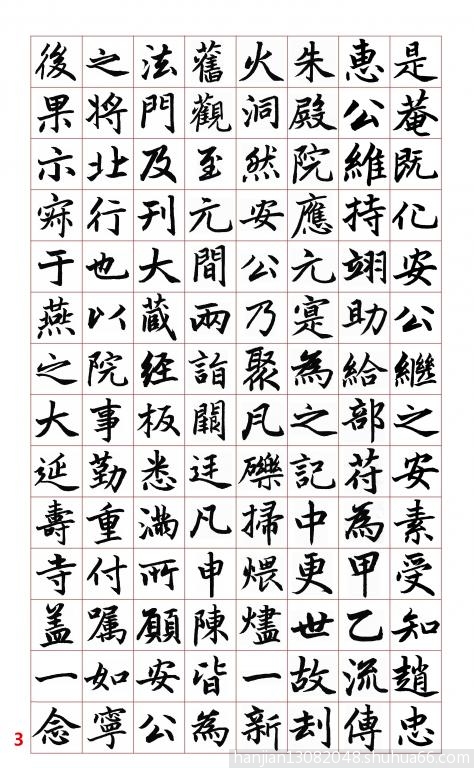 是菴既化安公繼之安素受知趙忠
惠公維持翊助給部符為甲乙流傳
朱殿院應元寔為之記中更世故刦
火洞然安公乃聚瓦礫掃煨燼一新
舊觀至元間兩詣闕廷凡申陳皆為
法門及刊大藏經板悉滿所願安公
之將北行也以院事勤重付囑如寧
後果示寂于燕之大延壽寺蓋一念
3
hanjian13082048.shuhua66.com